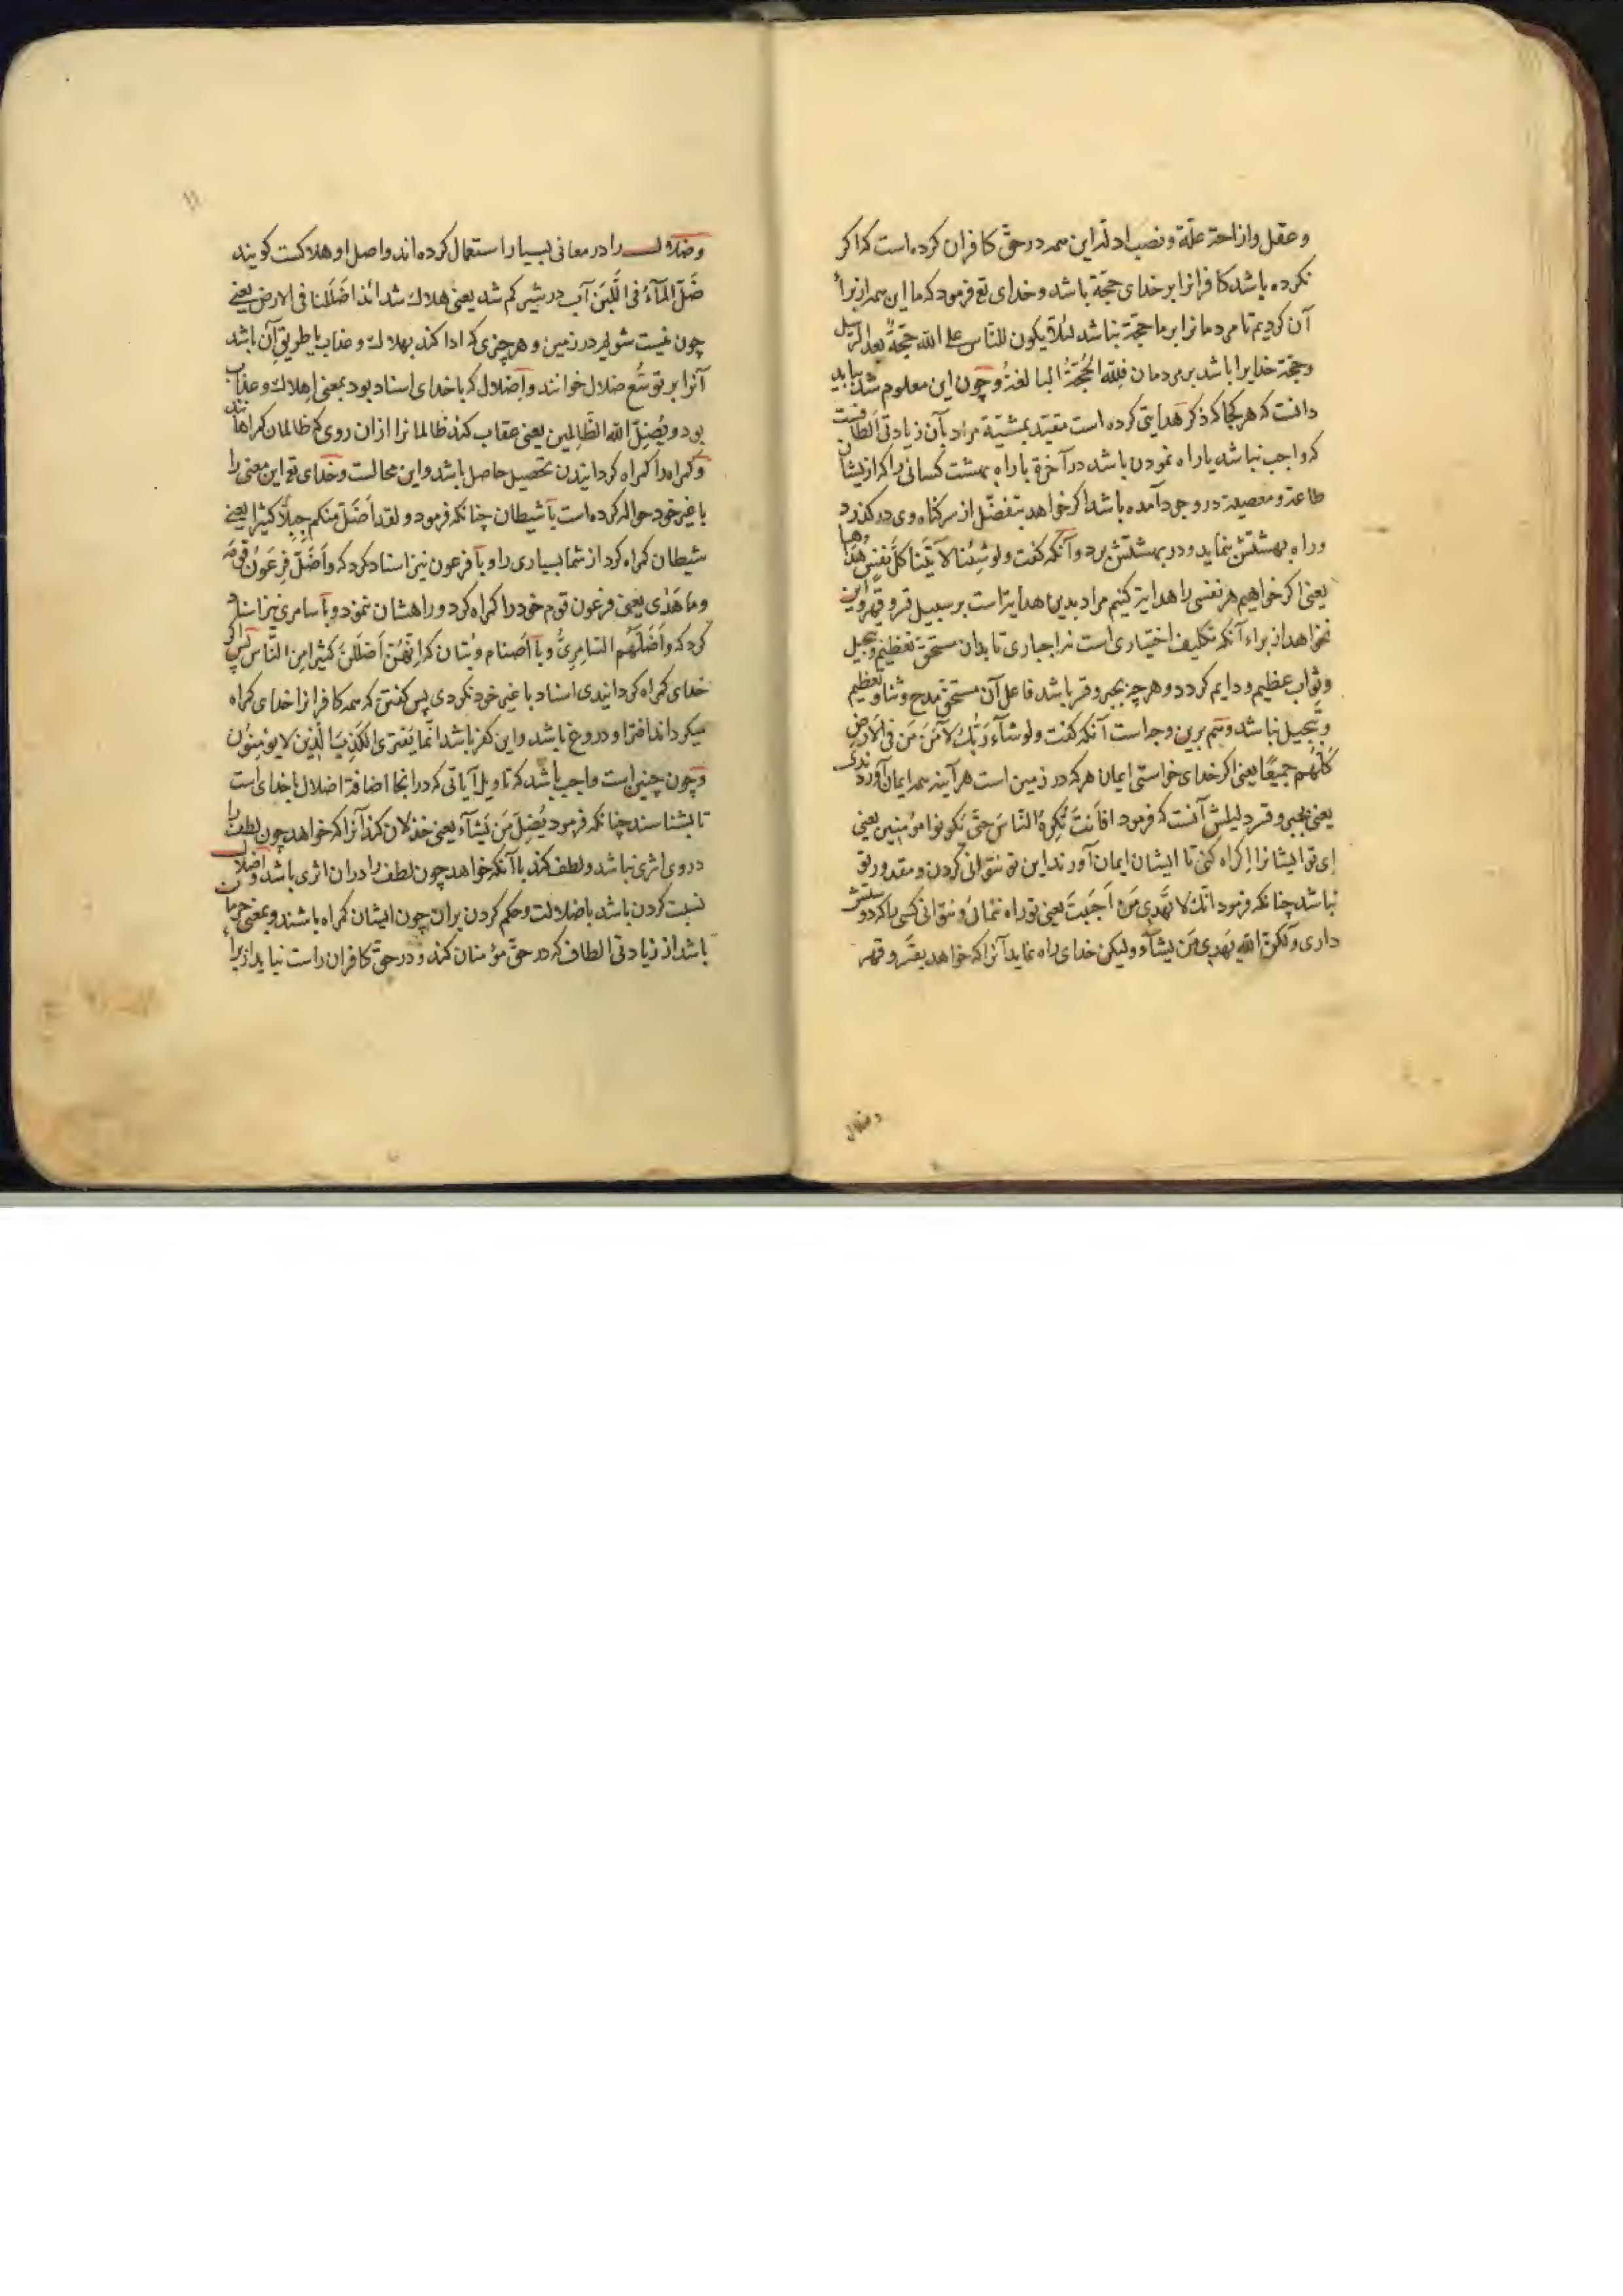 و عقل و ازاحة علّة و نصب ادله این همه در حقّ کافران کرده است که اکر
نکرده باشد کافرانرا بر خدای حجّة باشد و خدای تع فرمود که ما این همه از برا
آن کردیم تا مردمانرا بر ما حجّة نباشد لئلّا یکون للنّاس علی الله حجّةٌ بعد الرّسل
و حجّة خدایرا باشد بر مردمان فلِلّه الحُجّةُ البالغةُ و چون این معلوم شد بباید
دانست که هر کجا که ذکر هدایتی کرده است مقیّد بمشیّة مراد بآن زیادتی الطافست
که واجب نباشد یا راه نمودن باشد در آخرة با راه بهشت کسانی را که ازیشان
طاعة و معصیة در وجود آمده باشد اکر خواهد بتفضّل از سر کناه وی در کذرد
و راه بهشتش بنماید و در بهشتش برد و آنکه کفت و لو شِئنا لآتَینا کلّ نفسٍ هُداها
یعنی اکر خواهیم هر نفسی را هدایة کنیم مراد بدین هدایة است بر سبیل قسر و قهر و این
نخواهد از براء آنکه تکلیف اختیاری است نه اجباری تا بدان مستحق تعظیم و تبجیل
و ثواب عظیم و دایم کردد و هر چه بجبر و قسر باشد فاعل آن مستحق مدح و ثنا و تعظیم
و تبجیل نباشد و هم برین وجه است آنکه کفت و لو شآء رَبُّكَ لآمَنَ مَن فی الارضِ
کلّهُم جمیعًا یعنی اکر خدای خواستی ایمان هر که در زمین است هر آینه همه ایمان آوردندی
یعنی بجبر و قسر دلیلش آنست که فرمود افاَنتَ تُکرِهُ النّاسَ حتّی یکونوا مؤمنین یعنی
ای تو ایشانرا اکراه کنی تا ایشان ایمان آورند این تو نتوانی کردن و مقدور تو
نباشد چنانکه فرمود انّكَ لا تَهدی مَن اَحبَبتَ یعنی تو راه ننمائی و نتوانی کسی را که دوستش
داری و لکنّ الله یَهدی مَن یشآء و لیکن خدای راه نماید آنرا که خواهد بقسر و قهر
و ضلال
۱۱
و ضلال را در معانی بسیار استعمال کرده‌اند و اصل او هلاکست کویند
ضَلّ المآءُ فی اللَّبَن آب در شیر کم شد یعنی هلاك شد ائذا ضَلَلنا فی الارض یعنی
چون نیست شویم در زمین و هر چیزی که ادا کند بهلاك و عذاب یا طریق آن باشد
آنرا بر توسّع ضلال خوانند و اضلال که با خدای اسناد بود بمعنی اهلاك و عذاب
بود و یُضِلّ الله الظّالمین یعنی عقاب کند ظالمانرا از آن روی که ظالمان کمراهانند
و کمراه را کمراه کردانیدن تحصیل حاصل باشد و این محالست و خدای تع این معنی را
با غیر خود حواله کرده است با شیطان چنانکه فرمود و لقد اَضَلّ منکم جِبِلّاً کثیرا یعنی
شیطان کمراه کرد از شما بسیاری را و با فرعون نیز اسناد کرد که و اَضَلّ فرعونُ قومَهُ
و ما هَدٰی یعنی فرعون قوم خود را کمراه کرد و راهشان ننمود و با سامری نیز اسناد
کرد که و اَضَلَّهُم السّامِریُّ و با اصنام و بتان که اِنّهُنّ اَضلَلنَ کثیرا مِن النّاس پس اکر
خدای کمراه کردانیدی اسناد با غیر خود نکردی پس کفتن که همه کافرانرا خدای کمراه
میکرداند افترا و دروغ باشد و این کفر باشد انّما یَفتری الکَذِبَ الّذین لا یؤمنون
و چون چنین است واجب باشد که تاویل آیاتی که در آنجا اضافة اضلال با خدای است
تا بشناسند چنانکه فرمود یُضِلّ مَن یَشآء یعنی خذلان کند آنرا که خواهد چون لطف را
در وی اثری نباشد و لطف کند با آنکه خواهد چون لطف را در آن اثری باشد و اضلال
نسبت کردن باشد با ضلالت و حکم کردن بر آن چون ایشان کمراه باشند و بمعنی حرمان
باشد از زیادتی الطاف که در حقّ مؤمنان کند و در حقّ کافران راست نیاید از برا